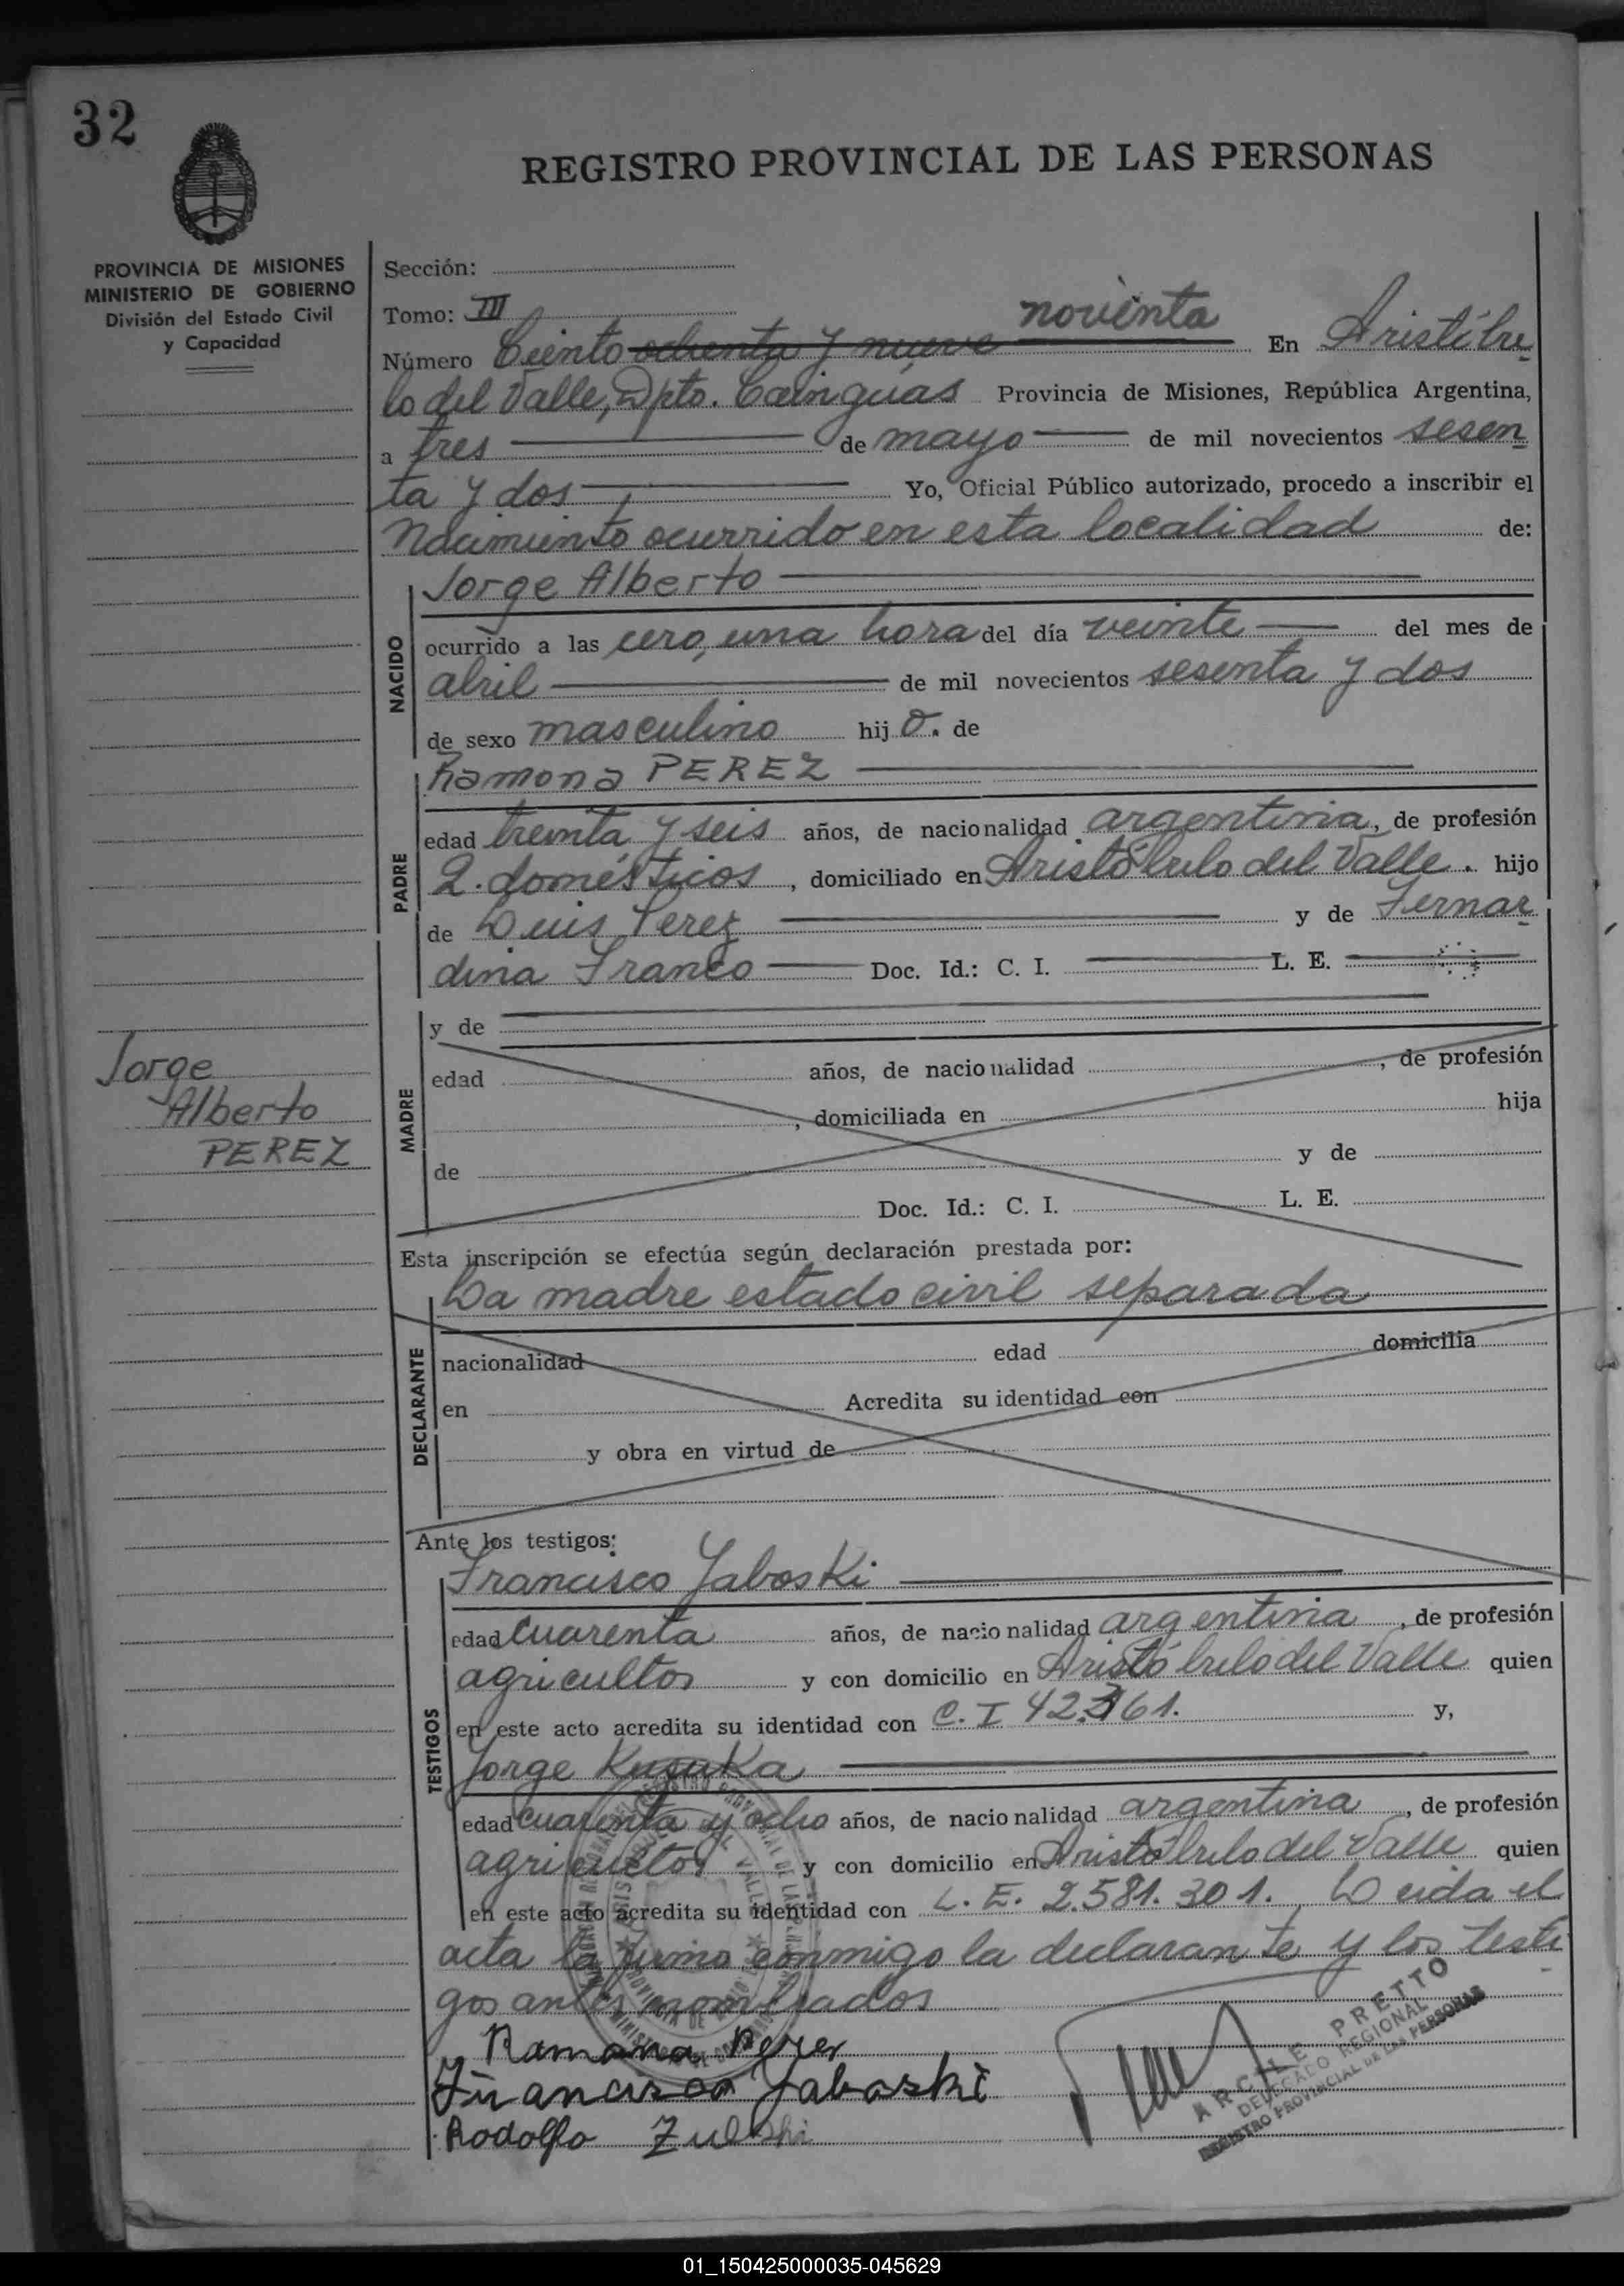 32
REGISTRO PROVINCIAL DE LAS PERSONAS
PROVINCIA DE MISIONES
MINISTERIO DE GOBIERNO
División del Estado Civil
y Capacidad
Sección:
Tomo: III
noventa
Número Ciento ochenta y nueve En Aristóbu
lo del Valle, Dpto. Cainguás Provincia de Misiones, República Argentina,
a tres de mayo de mil novecientos sesen
ta y dos Yo, Oficial Público autorizado, procedo a inscribir el
Nacimiento ocurrido en esta localidad de:
Jorge Alberto
NACIDO
ocurrido a las cero, una hora del día veinte del mes de
abril de mil novecientos sesenta y dos
de sexo masculino hij o. de
Ramona PEREZ
PADRE
edad treinta y seis años, de nacionalidad argentina, de profesión
Q. domésticos, domiciliado en Aristóbulo del Valle. hijo
de Luis Perez y de Fernar
dina Franco Doc. Id.: C. I. L. E.
MADRE
y de
edad años, de nacionalidad , de profesión
, domiciliada en hija
de y de
Doc. Id.: C. I. L. E.
Jorge
Alberto
PEREZ
Esta inscripción se efectúa según declaración prestada por:
La madre estado civil separada
DECLARANTE
nacionalidad edad domicilia
en Acredita su identidad con
y obra en virtud de
Ante los testigos:
Francisco Jaboski
TESTIGOS
edad cuarenta años, de nacionalidad argentina, de profesión
agricultor y con domicilio en Aristóbulo del Valle quien
en este acto acredita su identidad con C. I 42.361. y,
Jorge Kusuka
edad cuarenta y ocho años, de nacionalidad argentina, de profesión
agricultor y con domicilio en Aristóbulo del Valle quien
en este acto acredita su identidad con L. E. 2.581.301. Leida el
acta la firma conmigo la declarante y los testi
gos antes nombrados
Ramona Perez
Francisco Jaboski
Rodolfo
ARCILE PRETTO
DELEGADO REGIONAL
REGISTRO PROVINCIAL DE LAS PERSONAS
01_150425000035-045629